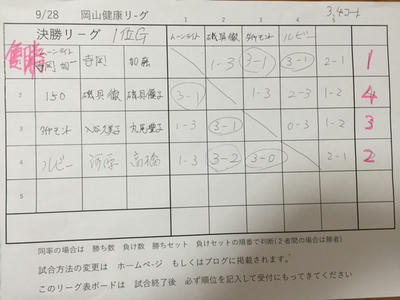 9/28 岡山健康リーグ 3,4コート
決勝リーグ 1位G 1 2 3 4 5
ムーンライト 磯具像 ダイヤモンド ルビー
優勝 ムーンライト 寺岡 加藤 1-3 3-1 3-1 2-1 1
2 150 磯具像 磯具優子 3-1 1-3 2-3 1-2 4
3 ダイヤモンド 入谷久美子 1-3 3-1 0-3 1-2 3
4 ルビー 河原 高橋 1-3 3-2 3-0 2-1 2
5
同率の場合は 勝ち数 負け数 勝ちセット 負けセットの順番で判断(2者間の場合は勝者)
試合方法の変更は ホームページ もしくはブログに掲載されます。
このリーグ表ボードは 試合終了後 必ず順位を記入して受付にもってきてください